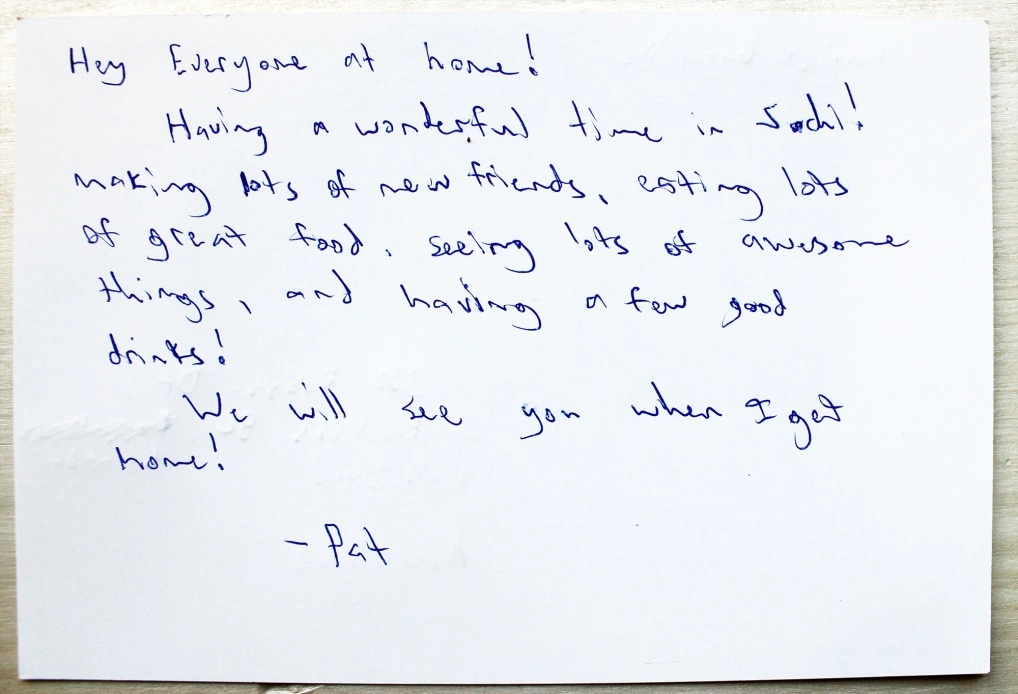 Hey Everyone at home!
Having a wonderful time in Sochi!
making lots of new friends, eating lots
of great food, seeing lots of awesome
things, and having a few good
drinks!
We will see you when I get
home!
- Pat